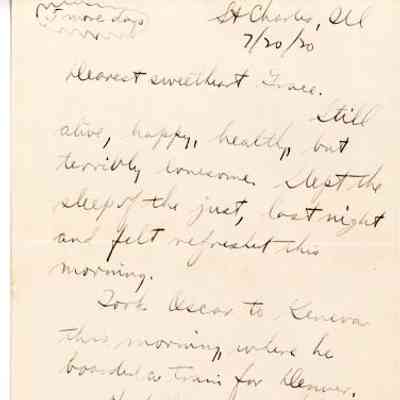 5 more days
St Charles, Ill
7/20/20
Dearest sweetheart Grace.
Still
alive, happy, healthy, but
terribly lonesome. Slept the
sleep of the just, last night
and felt refreshet this
morning.
Took Oscar to Geneva
this morning, where he
boarded a train for Denver.